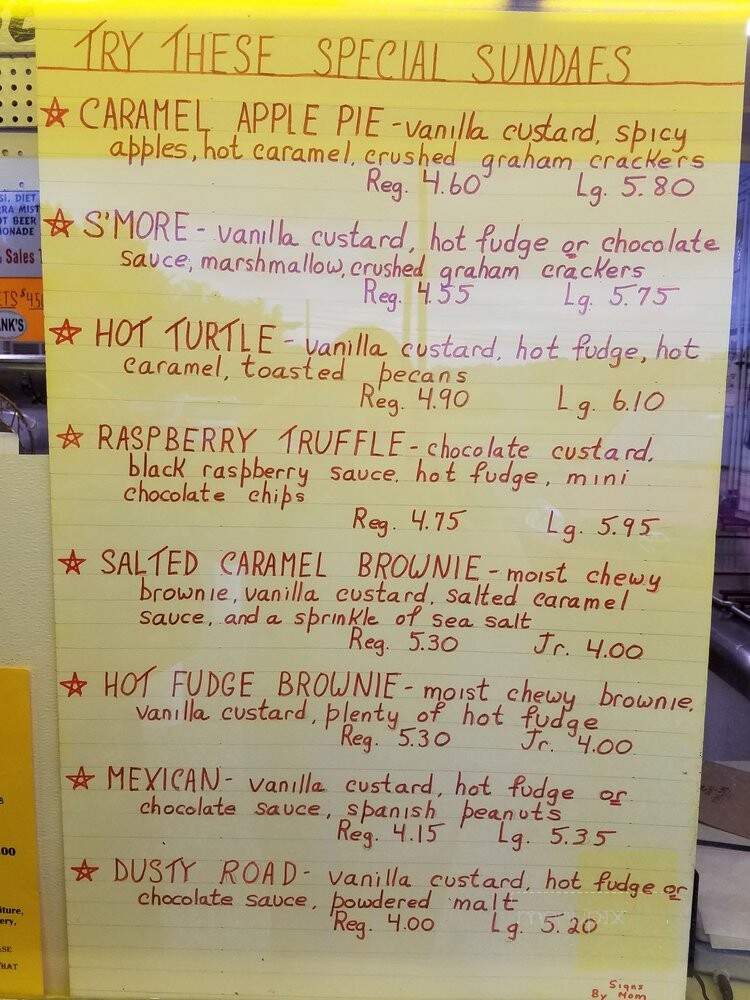 TRY THESE SPECIAL SUNDAES
CARAMEL APPLE PIE - vanilla custard, spicy
apples, hot caramel, crushed graham crackers
Reg. 4.60 Lg. 5.80
S'MORE - vanilla custard, hot fudge or chocolate
sauce, marshmallow, crushed graham crackers
Reg. 4.55 Lg. 5.75
HOT TURTLE - vanilla custard, hot fudge, hot
caramel, toasted pecans
Reg. 4.90 Lg. 6.10
RASPBERRY TRUFFLE - chocolate custard,
black raspberry sauce, hot fudge, mini
chocolate chips
Reg. 4.75 Lg. 5.95
SALTED CARAMEL BROWNIE - moist chewy
brownie, vanilla custard, salted caramel
sauce, and a sprinkle of sea salt
Reg. 5.30 Jr. 4.00
HOT FUDGE BROWNIE - moist chewy brownie,
vanilla custard, plenty of hot fudge
Reg. 5.30 Jr. 4.00
MEXICAN - vanilla custard, hot fudge or
chocolate sauce, spanish peanuts
Reg. 4.15 Lg. 5.35
DUSTY ROAD - vanilla custard, hot fudge or
chocolate sauce, powdered malt
Reg. 4.00 Lg. 5.20
Signs
By Mom
DIET
MIST
BEER
Sales